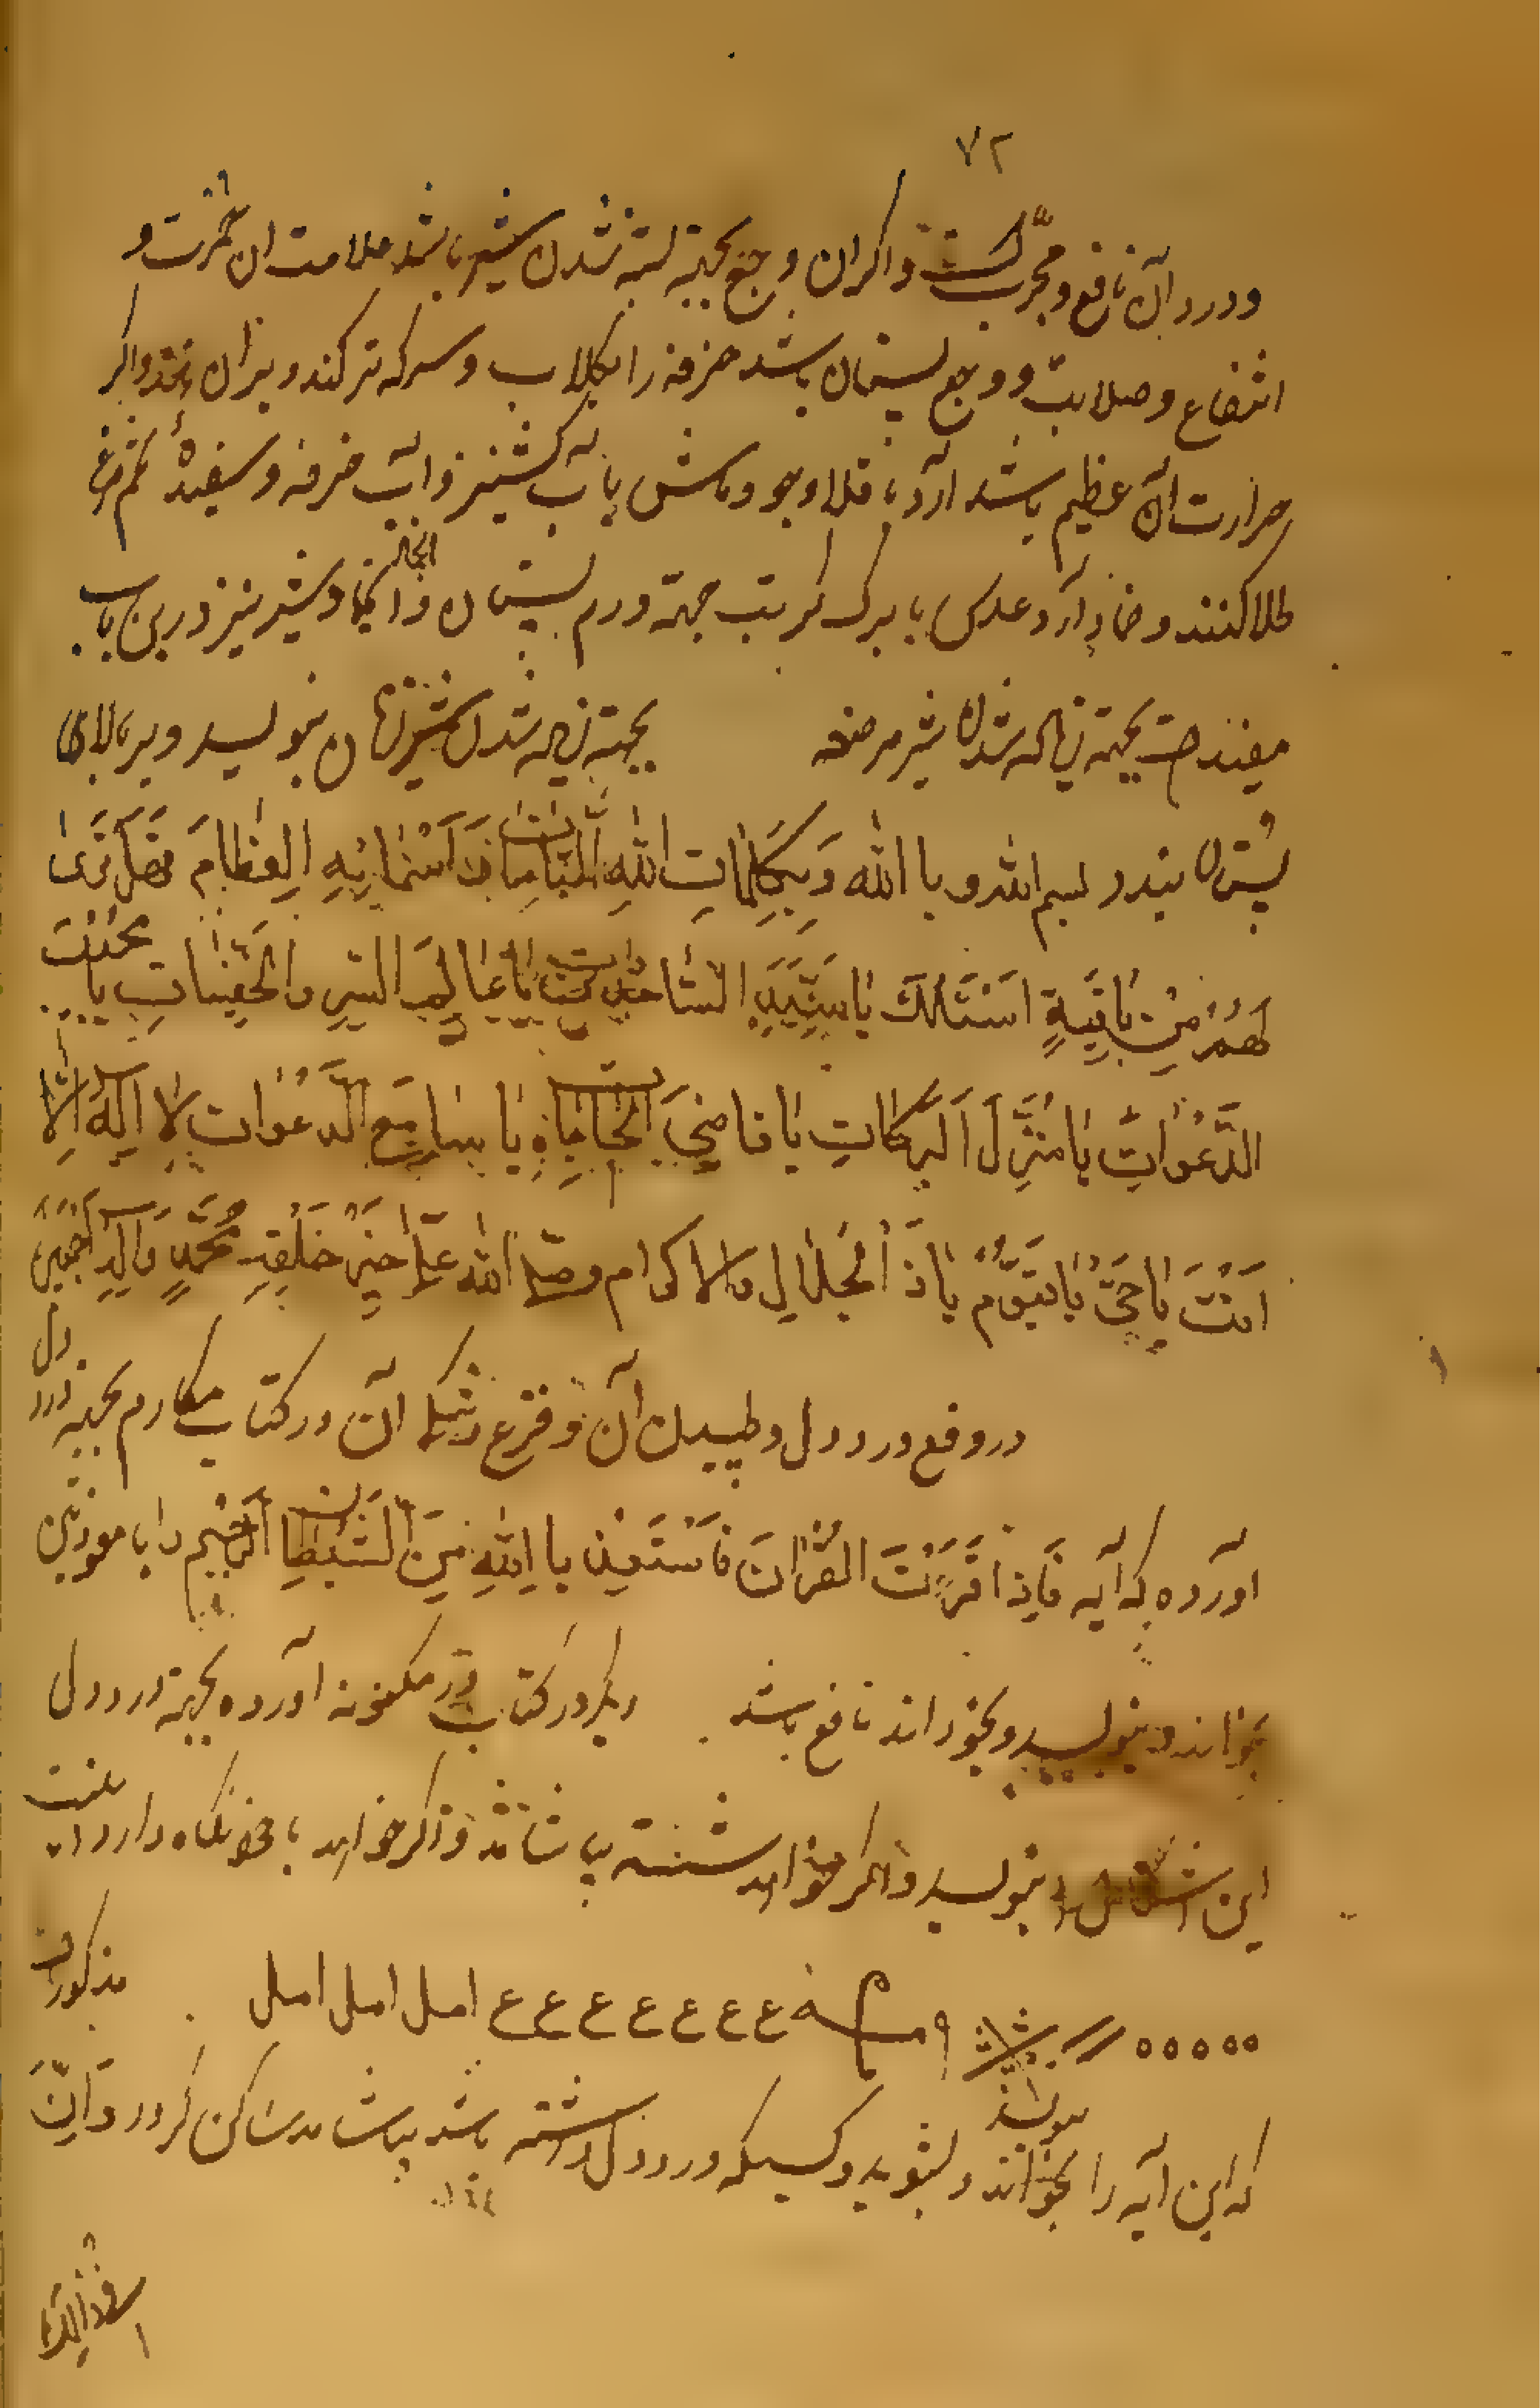 ٧٢
ودرد آن نافع و مجرّبست و اگر ان وجع بجهة بسته شدن شیر باشد علامت ان تمدّدست و
انتفاع و صلابت و وجع پستان باشد خرقه را بگلاب و سرکه تر کند و بران نهد و اگر
حرارت آن عظیم باشد آرد باقلا و جو و ماش بآب کشنیز و آب خرفه و سفیدهٔ تخم مرغ
طلا کنند و ضماد آرد عدس با برک کرنب جهة ورم پستان و انجماد شیر نیز درین باب
مفیدست بجهة زیاد شدن شیر مرضعه بجهة زیاد شدن شیر زنان بنویسد و بر بالای
پستان بندد بسم الله و با الله وَبِكَلِمَاتِ اللهِ التَّامَّاتِ وَاَسْمَائِهِ الْعِظَامِ فَهَلْ تَرَىٰ
لَهُمْ مِنْ بَاقِيَةٍ اَسْئَلُكَ يَا سَيِّدَ السَّادَاتِ يَا عَالِمَ السِّرِ وَالْخَفِيَّاتِ يَا مُجِيبَ
الدَّعَوَاتِ يَا مُنْزِلَ الْبَرَكَاتِ يَا قَاضِيَ الْحَاجَاتِ يَا سَامِعَ الدَّعَوَاتِ لَا اِلَهَ اِلَّا
اَنْتَ يَا حَيُّ يَا قَيُّومُ يَا ذَا الْجَلَالِ وَالاكرام وصلّى الله عَلَى خَيْرِ خَلْقِهِ مُحَمَّدٍ وَآلِهِ اَجْمَعِينَ
در دفع درد دل و طپیدن آن و فزع و شبه آن در کتاب مکارم بجهة درد دل
آورده که آیه فَاِذَا قَرَأْتَ الْقُرْانَ فَاسْتَعِذْ بِا اللهِ مِنَ الشَّيْطَانِ الرَّجِيمِ را با معوذتین
بخواند و بنویسد و بخوراند نافع باشد دیگر در کتاب درّ مکنونه آورده بجهة درد دل
این اشکال را بنویسد و اگر خواهد شسته بیاشامد و اگر خواهد با خود نگاه دارد اینست
ااااا ع ع ع ع ع ع ع امل امل امل مذکورات
که این آیه را بخواند و بنویسد و بشوید و کسیکه درد دل داشته باشد بیاشامد ساکن گردد وَاِنَّ